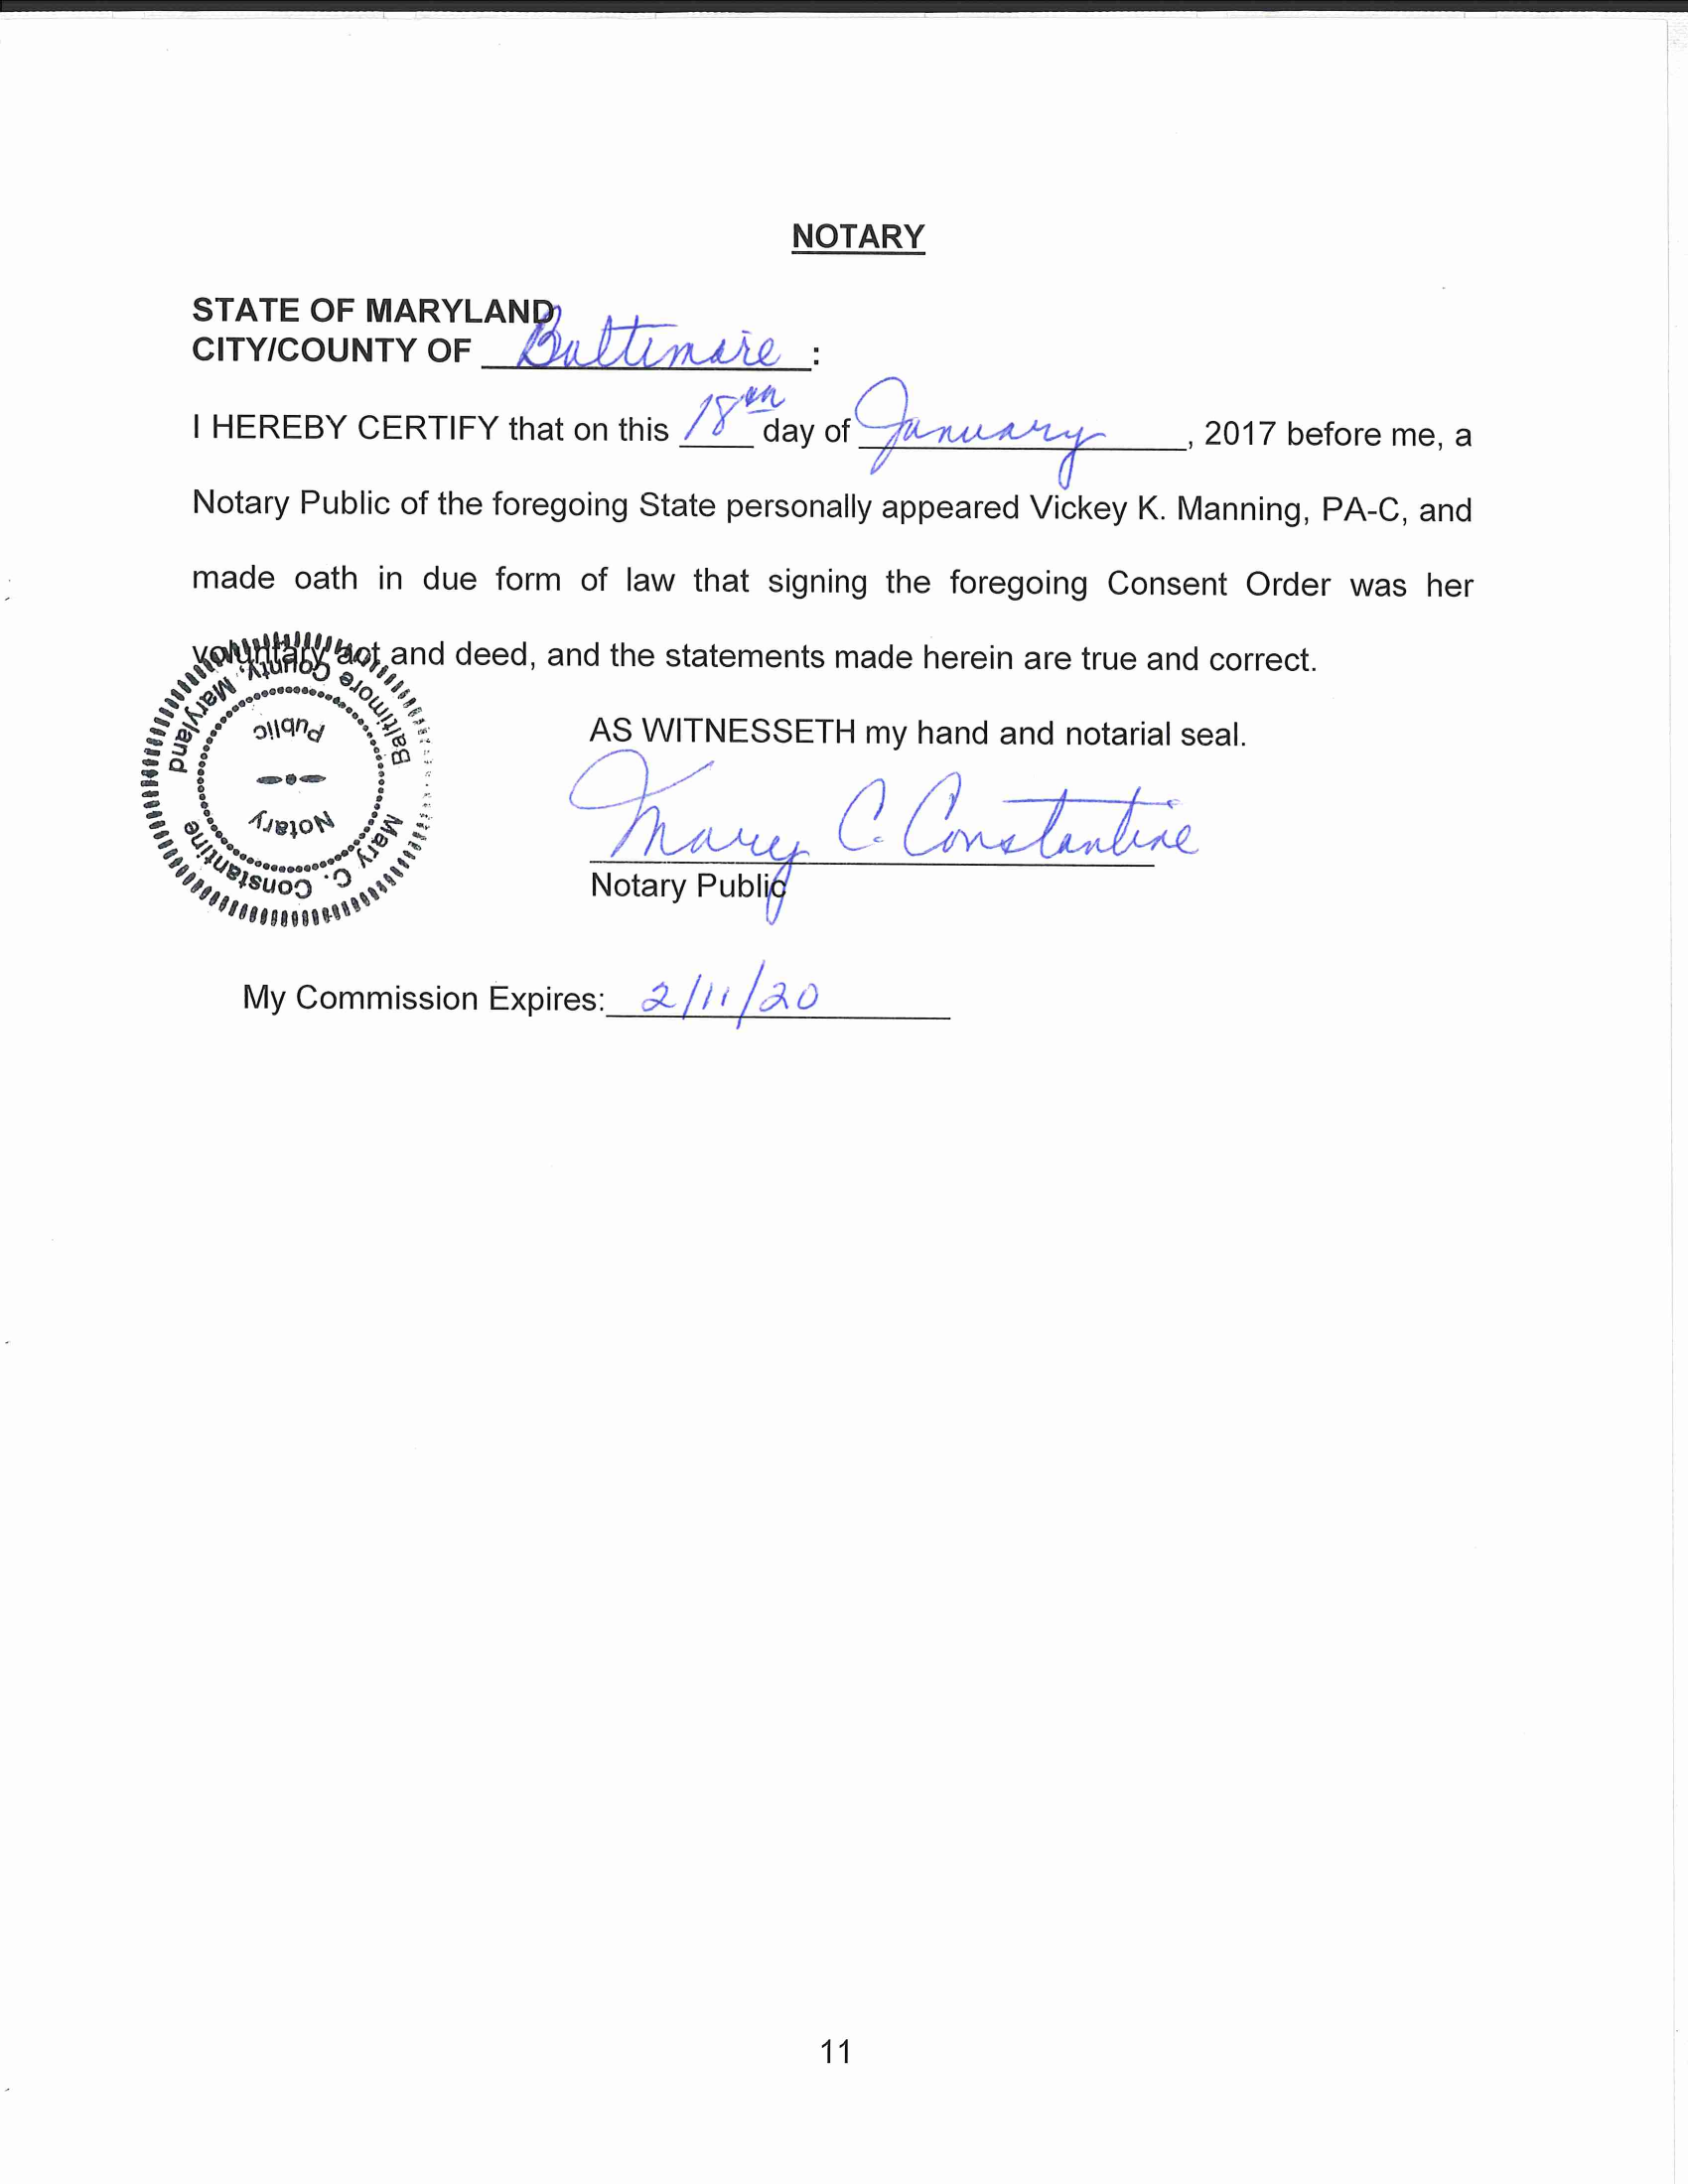 NOTARY
STATE OF MARYLAND
CITY/COUNTY OF Baltimore :
I HEREBY CERTIFY that on this 18th day of January, 2017 before me, a
Notary Public of the foregoing State personally appeared Vickey K. Manning, PA-C, and
made oath in due form of law that signing the foregoing Consent Order was her
voluntary act and deed, and the statements made herein are true and correct.
AS WITNESSETH my hand and notarial seal.
Mary C. Constantine
Notary Public
Mary C. Constantine
Baltimore County, Maryland
Notary
Public
My Commission Expires: 2/11/20
11